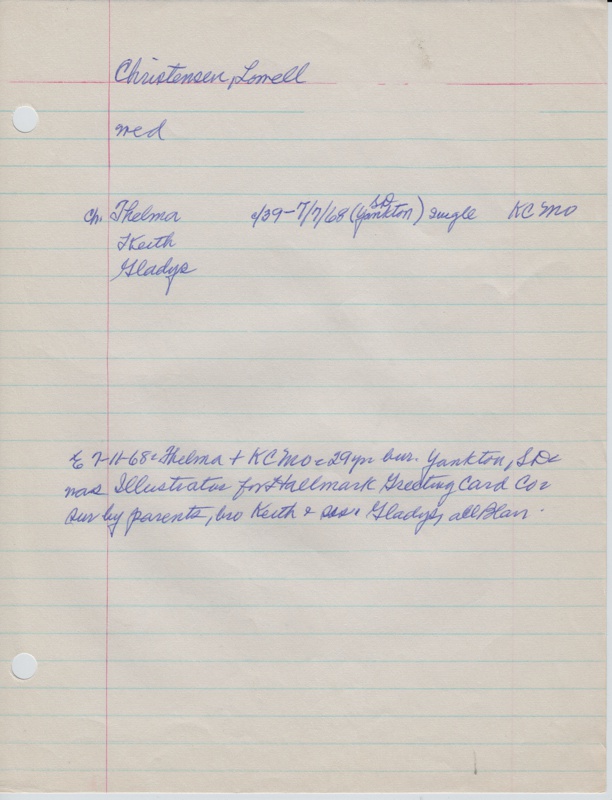 Christensen, Lowell
med
ch. Thelma c/39-7/7/68 (Yankton SD) single KC Mo
Keith
Gladys
E 7-11-68: Thelma + KC Mo: 29 yr bur. Yankton, SD:
was Illustrator for Hallmark Greeting Card Co:
sur by parents, bro Keith & sis: Gladys, all Blair.